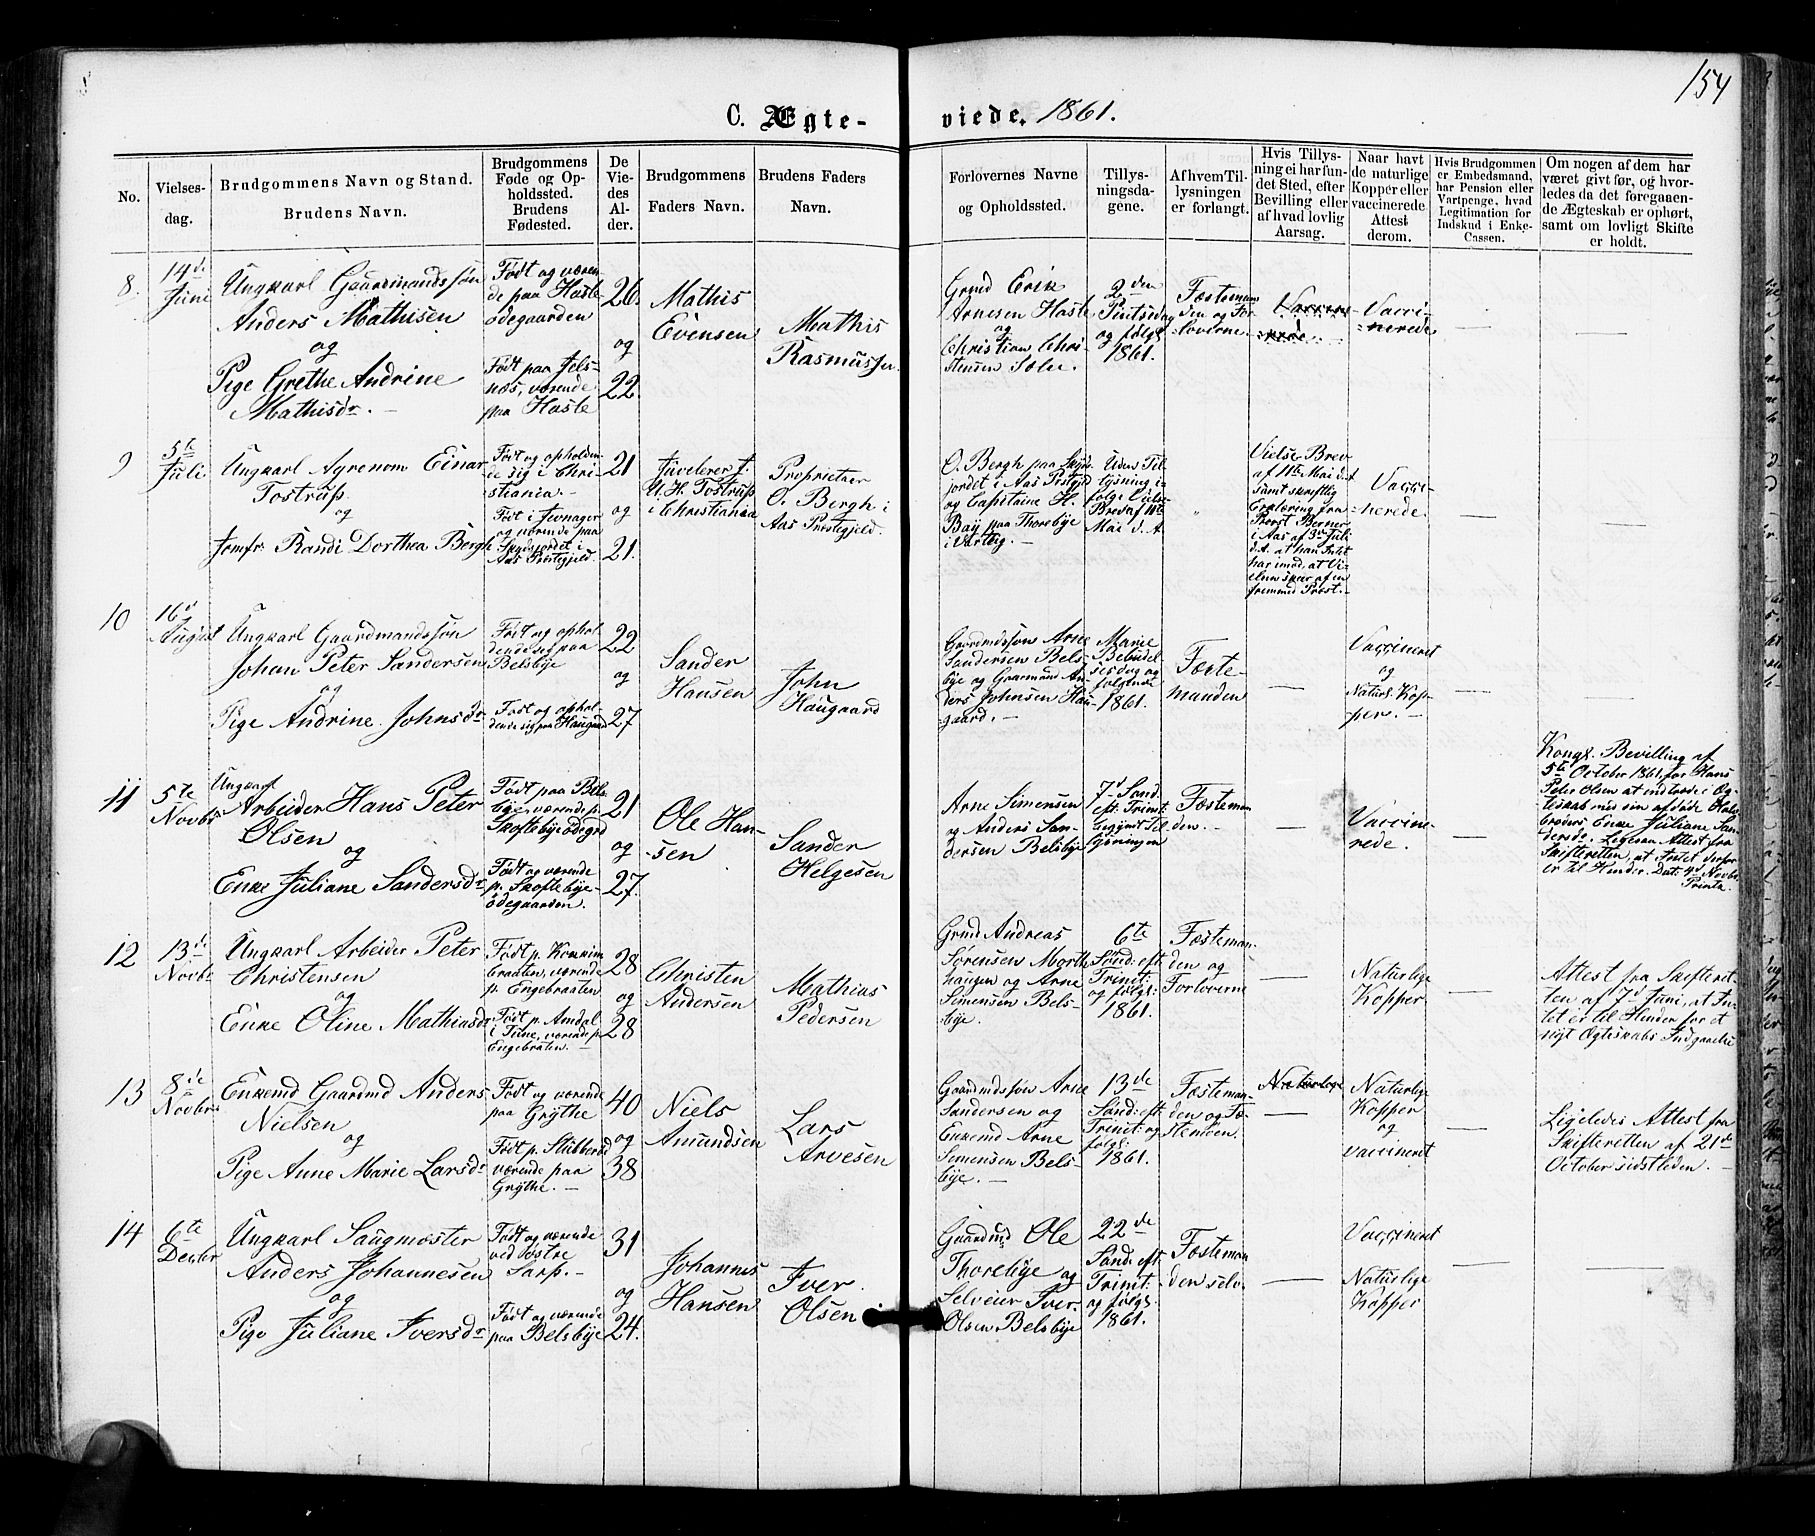 154
C. Ægte-viede. 1861.
No.
Vielses-
dag.
Brudgommens Navn og Stand.
Brudens Navn.
Brudgommens
Føde og Op-
holdssted.
Brudens
Fødested.
De
Vie-
des
Al-
der.
Brudgommens
Faders Navn.
Brudens Faders
Navn.
Forlovernes Navne
og Opholdssted.
Tillys-
ningsda-
gene.
Af hvem Til-
lysningen
er forlangt.
Hvis Tillys-
ning ei har fun-
det Sted, efter
Bevilling eller
af hvad lovlig
Aarsag.
Naar havt
de naturlige
Kopper eller
vaccinerede
Attest
derom.
Hvis Brudgommen
er Embedsmand,
har Pension eller
Vartpenge, hvad
Legitimation for
Indskud i Enke-
Cassen.
Om nogen af dem har
været givt før, og hvor-
ledes da det foregaaen-
de Ægteskab er ophørt,
samt om lovligt Skifte
er holdt.
8.
14de
Juni
Ungkarl Gaardmandssøn
Anders Mathisen
og
Pige Grethe Andrine
Mathisdr. —
Født og væren-
de paa Hasle
ødegaarden
Født paa Jels-
næs, værende
paa Hasle
26.
og
22.
Mathis
Evensen
Mathis
Rasmussen.
Grmd Erik
Arnesen Hasle
og
Christian Chri-
stensen
2den
Pintsedag
og følgd
1861.
Fæstemann
den og For-
loverne.
Vaccine-
rede
Vacci-
nerede
—
—
9
5te
Juli
Ungkarl Agronom Einar
Tostrup
og
Jomfr. Randi Dorthea Bergh
Født og opholden-
de sig i Chri-
stiania. —
Født i Jevnager
og værende paa
Sundjordet i
Aas Præstegjeld.
21
og
21.
Juvelerer J.
U. H. Tostrup
i Christiania
Proprietær
O. Bergh i
Aas Præstegjeld
O. Bergh paa
jordet i Aas Prstgjd
og Capitaine H.
Bay paa Thorebye
i Varteig. —
Uden Til-
lysning i-
følge Vielse-
Brev af 11te
Mai d. A.
"
Vielse Brev
af 11te Mai d. A
samt skriftlig
Erklæring fra
Provst Berner
i Aas af 3die Juli
d. A. at han Intet
har imod, at Vi-
elsen skeer af en
fremmed Præst. —
Vacci-
nerede.
—
10
16d
August
Ungkarl Gaardmandssøn
Johan Peter Sandersen
og
Pige Andrine Johnsdr
Født og ophol-
dende sig paa
Belsbye
Født og ophol-
dende sig paa Haugaard
22
og
27
Sander
Hansen
John
Haugaard
Gaardmdssøn Arne
Sandersen Bels-
bye og Gaardmand An-
ders Johnsen Hau-
gaard. —
Marie
Bebudel-
sesdag og
følgende
1861.
Fæste-
manden
—
Vaccineret
og
Naturl. Kop-
per. —
—
—
11
5te
Novbr
Ungkarl
Arbeider Hans Peter
Olsen
og
Enke Juliane Sandersdr
Født paa Bels-
bye, værende p.
Skoftebye ødegrd
Født og værende
p. Skoftebye-
ødegaarden.
21
og
27.
Ole Han-
sen
Sander
Helgesen
Arne Simensen
og Anders San-
dersen Belsbye
7d Sønd.
eft. Trinit.
begyndt Til-
lysningen
Fæsteman-
den. —
—
Vaccine-
rede.
—
Kongl. Bevilling af
5te October 1861, for Hans
Peter Olsen at indtræde i Æg-
teskab med sin afdøde Halv-
broders Enke Juliane San-
dersdr. Ligesaa Attest fra
Skifteretten, at Intet derfor
er til Hinder. Dat. 4d Novbr.
12
13de
Novbr
Ungkarl Arbeider Peter
Christensen
og
Enke Oline Mathiasdr
Født p.
Braaten, værende
p. Engebraaten
Født p. Amdal
i Tune, værende p.
Engebraten. —
28
og
28
Christen
Andersen
Mathias
Pedersen
Grmd Andreas
Sørensen Morth
haugen og Arne
Simensen Bels-
bye.
6te
Sønd. eft
Trinit
og følgs:
1861.
Fæsteman-
den og
Forloverne
—
Naturlige
Kopper
—
Attest fra Skifteret-
ten af 7d Juni, at In-
tet er til Hinder for et
nyt Ægteskabs Indgaaelse
13
8de
Novbr
Enkemd Gaardmd Anders
Nielsen
og
Pige Anne Marie Larsdr
Født og værende
paa Grythe
Født p. Stubberud
værende paa
Grythe. —
40
og
38
Niels
Amundsen
Lars
Arvesen
Gaardmdssøn Arne
Sandersen og
Enkemd Arne
Simensen Bels-
bye. —
13de
Sønd. eft.
Trinit: og
følgs:
1861.
Fæsteman-
den og Fæ-
stemøen.
Naturlige
—
Naturlige
Kopper
og
vaccineret
—
Ligeledes Attest fra
Skifteretten af 21de
October sidstleden. —
14
6te
Decbr
Ungkarl Saugmester
Anders Johannesen
og
Pige Juliane Iversdr
Født og værende
ved østre
Sarp. —
Født og værende
paa Belsbye
31
og
24.
Johannes
Hansen
Iver
Olsen
Gaardmd Ole
Thorebye og
Selveier Iver
Olsen Belsbye
22de
Sønd: eft
Trinit:
og følgs.
1861.
Fæsteman-
den selv.
—
Vaccineret
—
Naturlige
Kopper
—
—